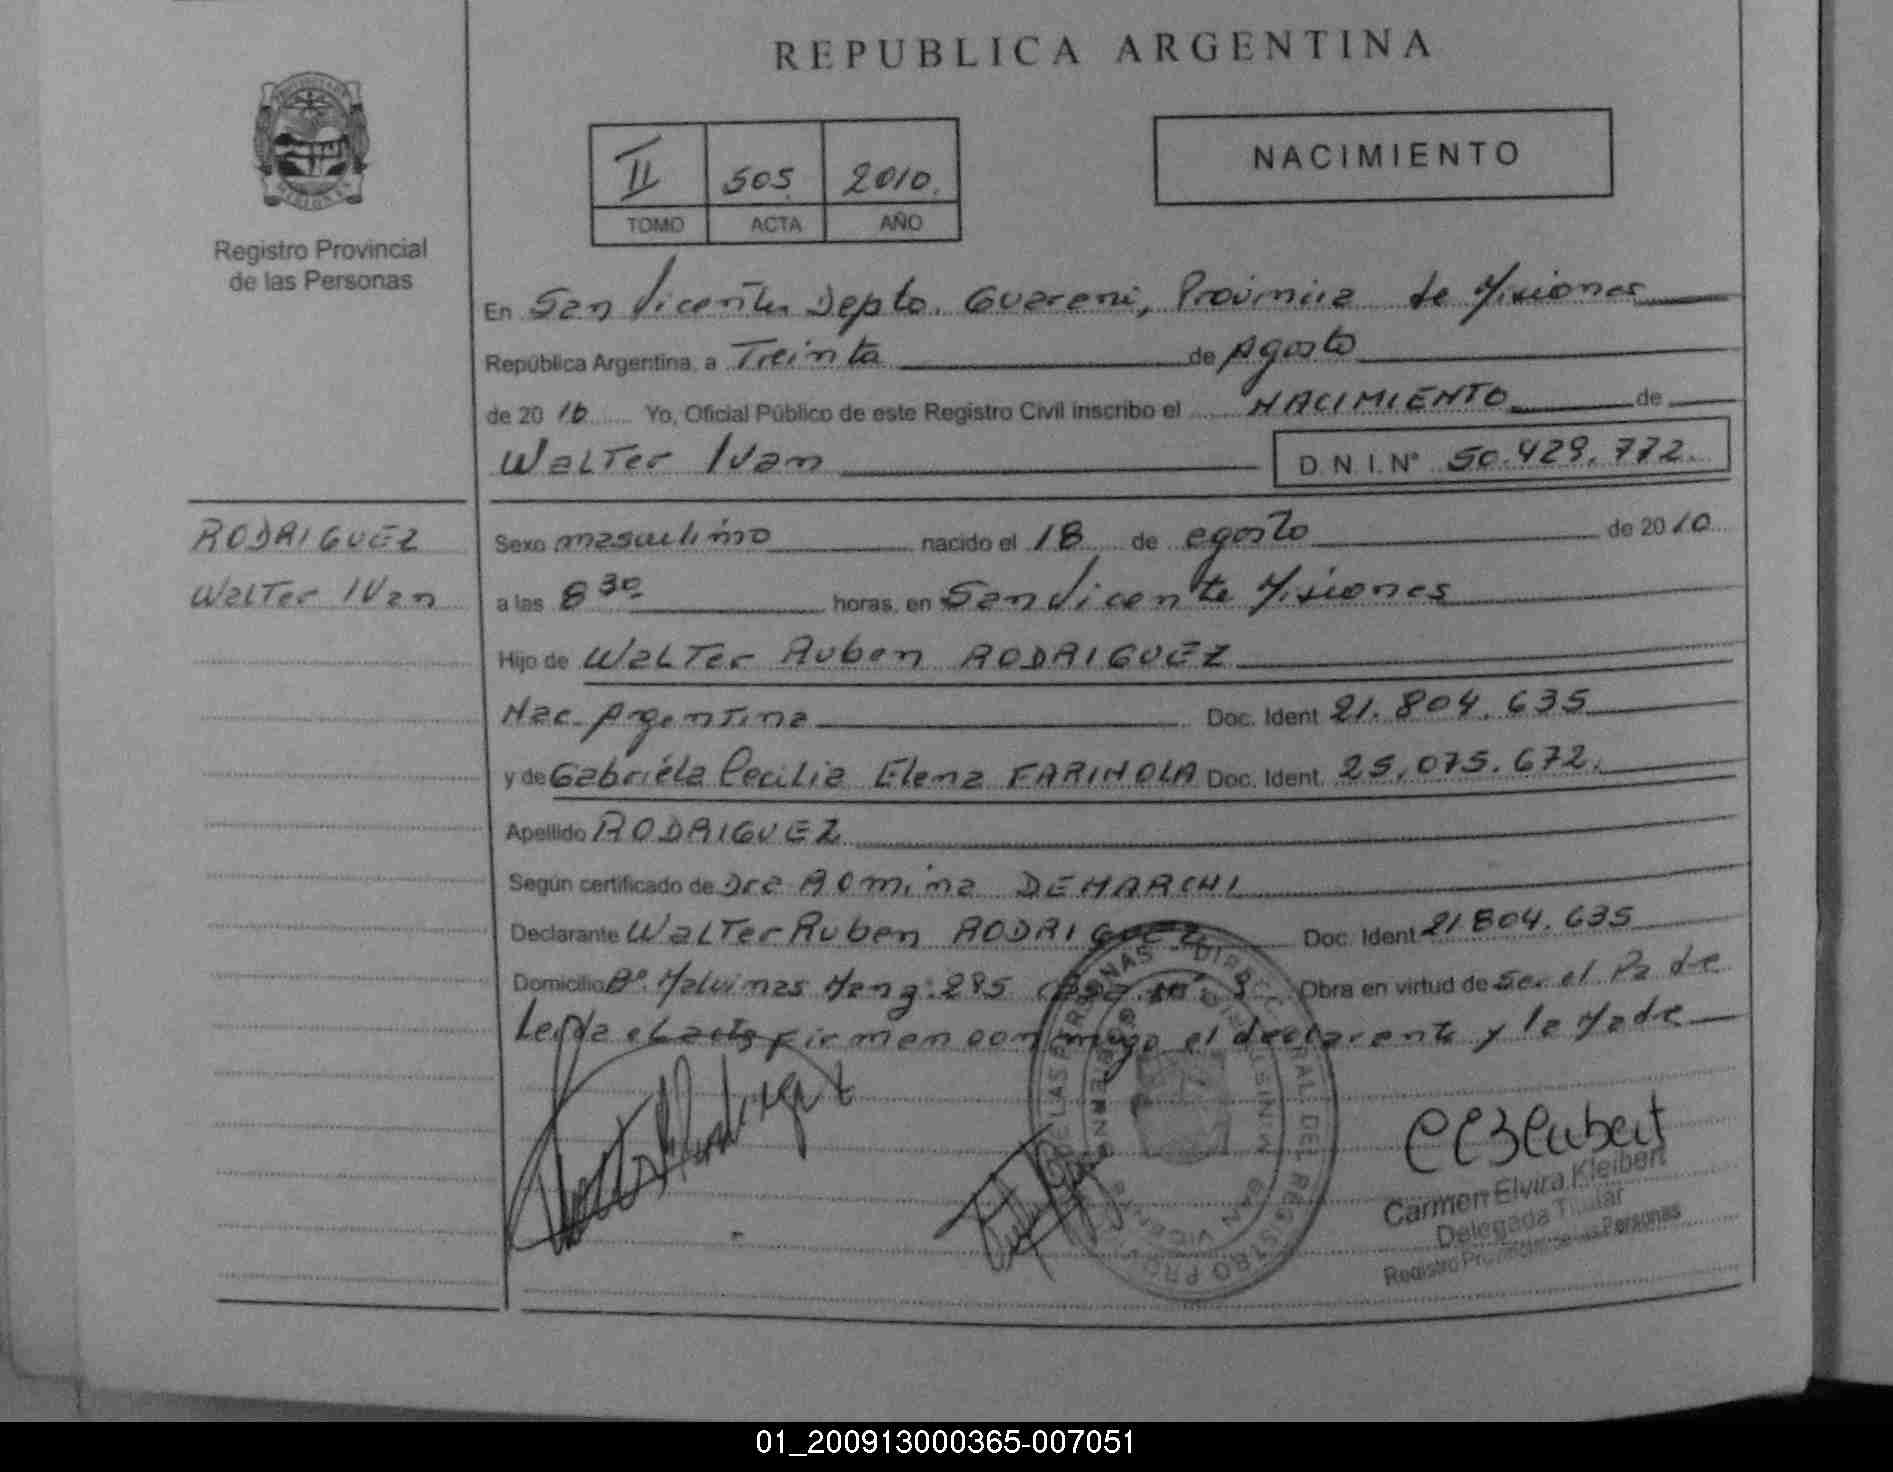 REPUBLICA ARGENTINA
II 505 2010.
TOMO ACTA AÑO
NACIMIENTO
Registro Provincial
de las Personas
En San Vicente, Depto. Guarani, Provincia de Misiones
República Argentina, a Treinta de Agosto
de 2010 Yo, Oficial Público de este Registro Civil inscribo el NACIMIENTO de
Walter Ivan D.N.I.Nº 50.429.772.
RODRIGUEZ
Walter Ivan
Sexo masculino nacido el 18 de agosto de 2010
a las 8 30 horas, en San Vicente Misiones
Hijo de Walter Ruben RODRIGUEZ
Nac. Argentina Doc. Ident 21.804.635
y de Gabriela Cecilia Elena FARINOLA Doc. Ident. 25.075.672.
Apellido RODRIGUEZ
Según certificado de Dra Romina DEMARCHI
Declarante Walter Ruben RODRIGUEZ Doc. Ident 21804.635
Domicilio Bº. Malvinas Manz. 285 casa nº 3 Obra en virtud de ser el Padre
Leida el acta firman conmigo el declarante y la Madre
Carmen Elvira Kleibert
Delegada Titular
Registro Provincial de las Personas
01_200913000365-007051